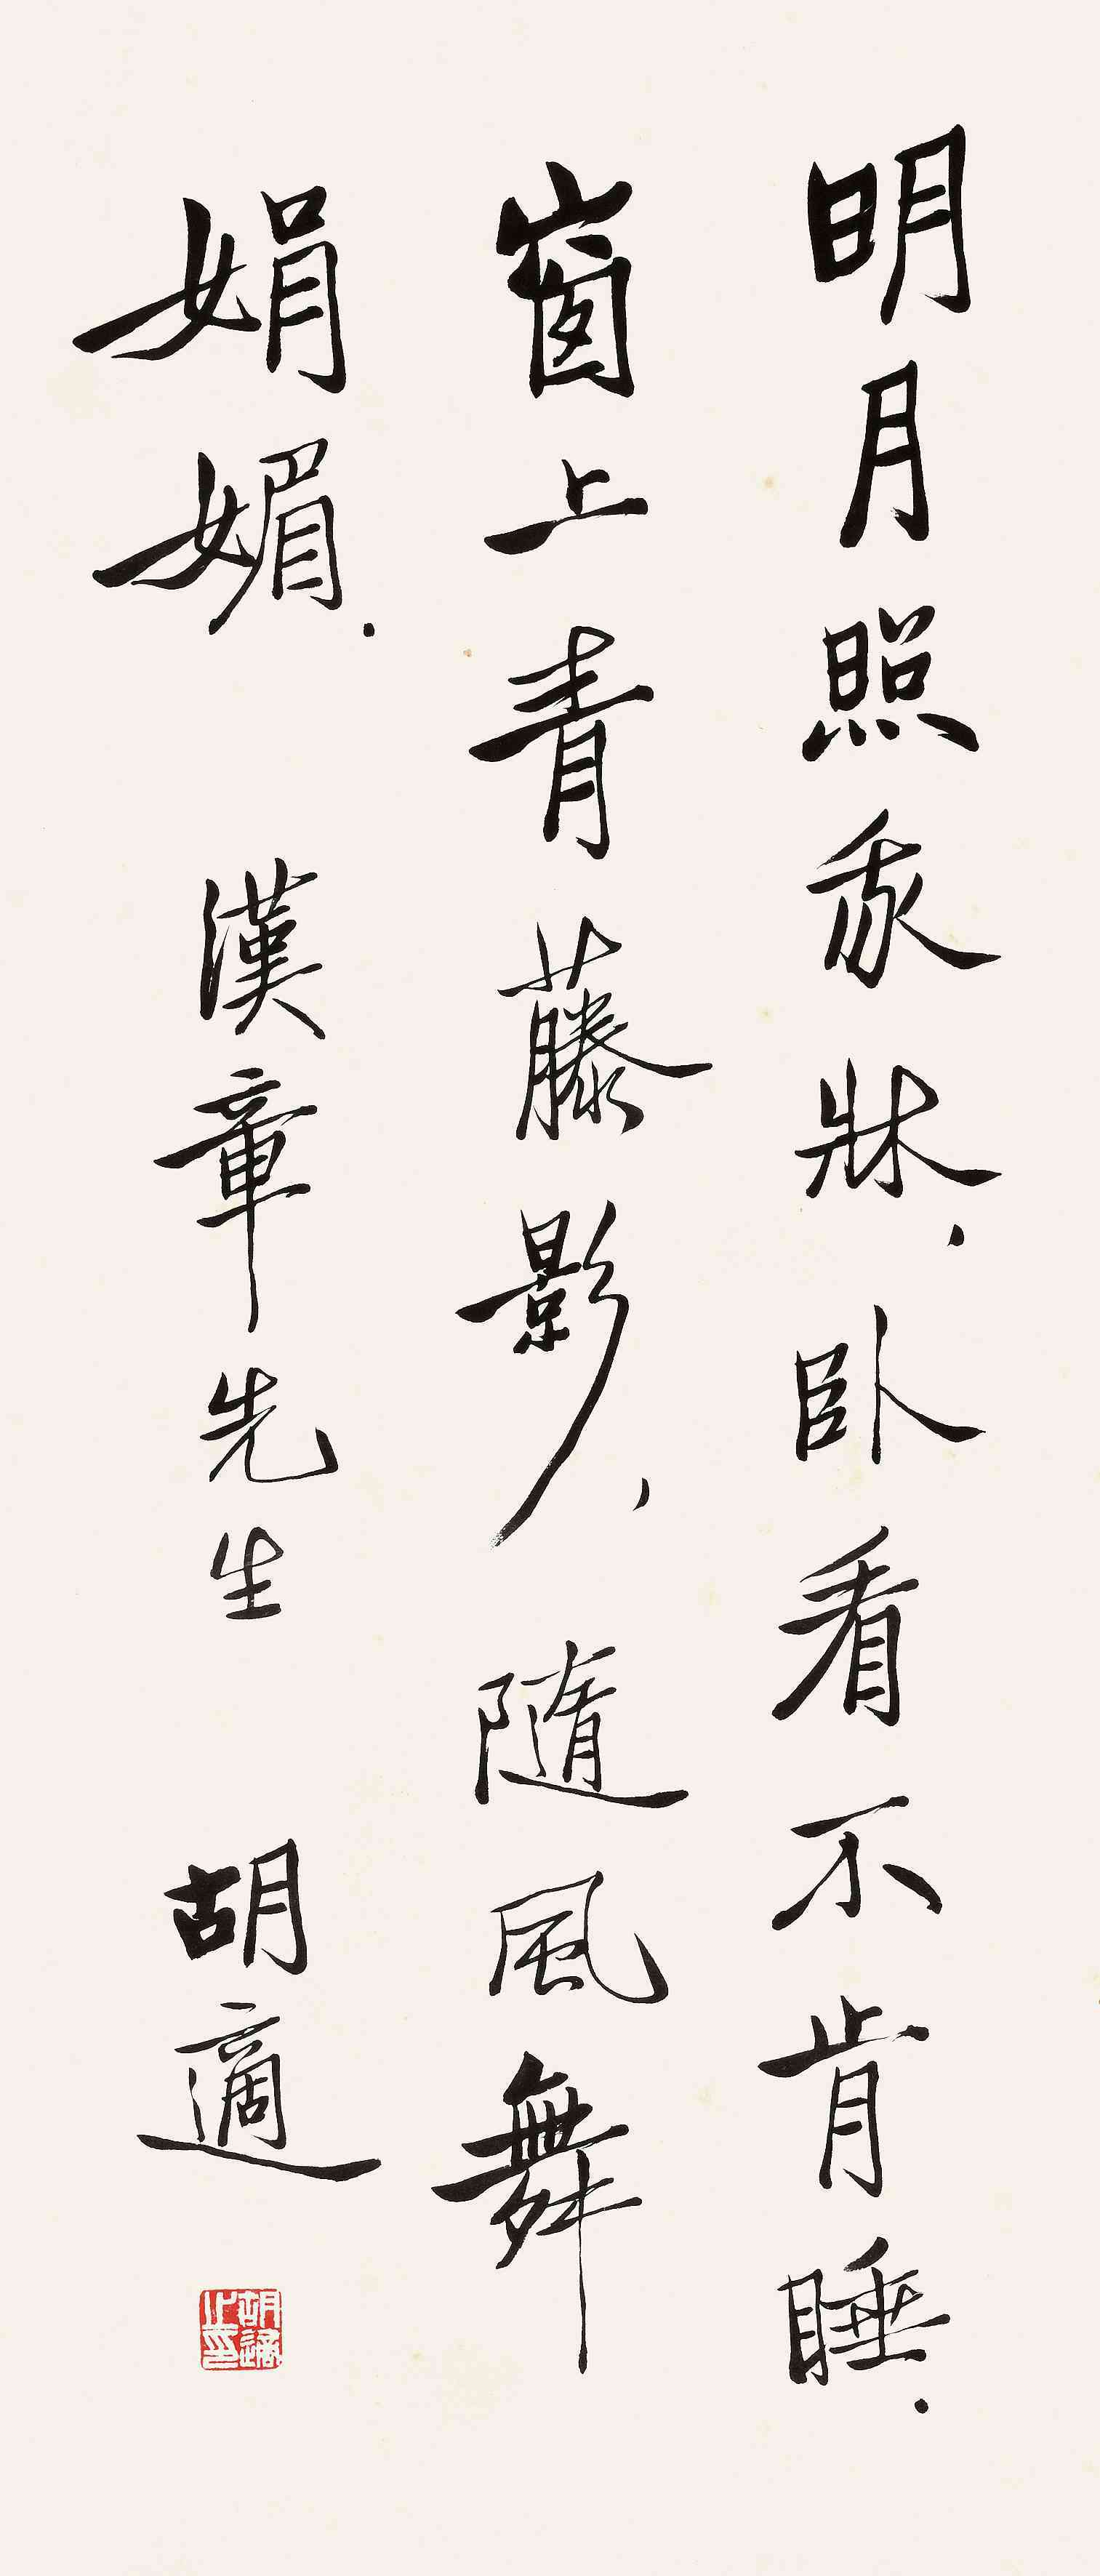 明月照我牀．臥看不肯睡．
窗上青藤影，隨風舞
娟媚．　漢章先生　胡適
胡適之印